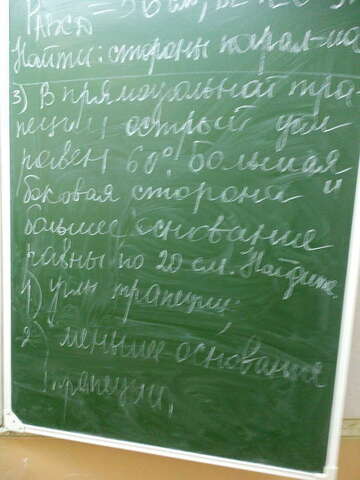 P ABCD = 36 см,
Найти: стороны парал-ма
3) В прямоугольной тра-
пеции острый угол
равен 60°, большая
боковая сторона и
большее основание
равны по 20 см. Найдите
1) углы трапеции;
2) меньшее основание
трапеции.